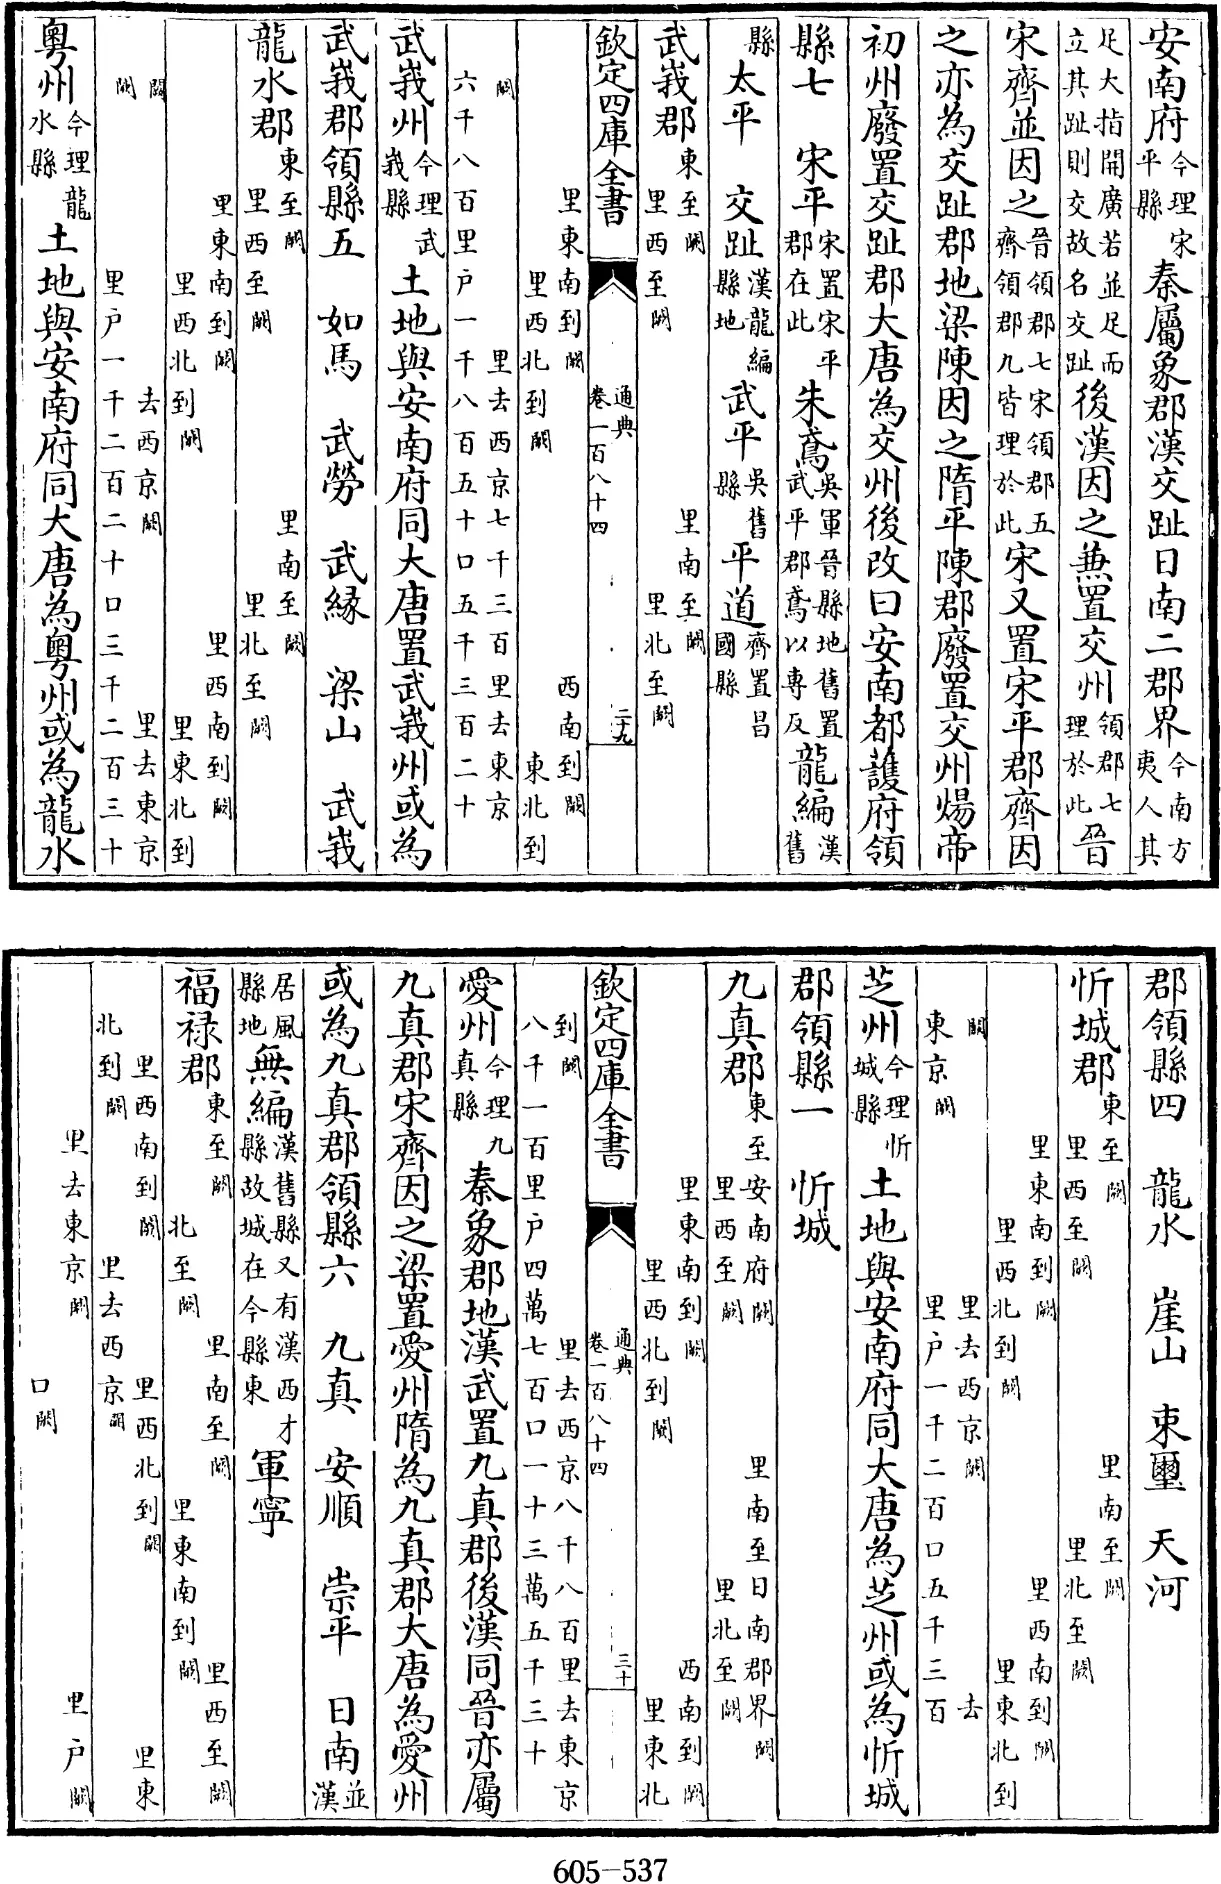 安南府今理宋平縣秦屬象郡漢交趾日南二郡界今南方夷人其
足大指開廣若並足而立其趾則交故名交趾後漢因之兼置交州領郡七理於此晉
宋齊並因之晉領郡七宋領郡五齊領郡九皆理於此宋又置宋平郡齊因
之亦為交趾郡地梁陳因之隋平陳郡廢置交州煬帝
初州廢置交趾郡大唐為交州後改曰安南都護府領
縣七 宋平宋置宋平郡在此 朱鳶吳軍晉縣地舊置武平郡鳶以專反 龍編漢舊
縣 太平 交趾漢龍編縣地 武平吳舊縣 平道齊置昌國縣
武峩郡東至闕里西至闕 里南至闕里北至闕
欽定四庫全書 通典卷一百八十四 二十九
里東南到闕里西北到闕 西南到闕東北到
闕 里去西京七千三百里去東京六千八百里戶一千八百五十口五千三百二十
武峩州今理武峩縣 土地與安南府同大唐置武峩州或為
武峩郡領縣五 如馬 武勞 武緣 梁山 武峩
龍水郡東至闕里西至闕 里南至闕里北至闕
里東南到闕里西北到闕 里西南到闕里東北到
闕 去西京闕 里去東京闕 里戶一千二百二十口三千二百三十
粵州今理龍水縣 土地與安南府同大唐為粵州或為龍水
郡領縣四 龍水 崖山 東璽 天河
忻城郡東至闕里西至闕 里南至闕里北至闕
里東南到闕里西北到闕 里西南到闕里東北到
闕 里去西京闕 去東京闕 里戶一千二百口五千三百
芝州今理忻城縣 土地與安南府同大唐為芝州或為忻城
郡領縣一 忻城
九真郡東至安南府闕里西至闕 里南至日南郡界闕里北至闕
里東南到闕里西北到闕 西南到闕里東北
欽定四庫全書 通典卷一百八十四 三十
到闕 里去西京八千八百里去東京八千一百里戶四萬七百口一十三萬五千三十
愛州今理九真縣 秦象郡地漢武置九真郡後漢同晉亦屬
九真郡宋齊因之梁置愛州隋為九真郡大唐為愛州
或為九真郡領縣六 九真 安順 崇平 日南並漢
居風縣地 無編漢舊縣又有漢西才縣故城在今縣東 軍寧
福祿郡東至闕 里南至闕 里西至闕北至闕 里東南到闕
里西南到闕 里西北到闕 里東北到闕 里去西京闕
里去東京闕 里戶闕口闕
605-537